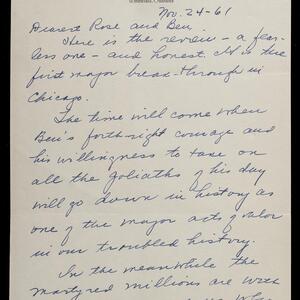 Nov. 24-61
Dearest Rose and Ben,
Here is the review - a fear-
less one - and honest. It is the
first major break-through in
Chicago.
The time will come when
Ben's forth-right courage and
his willingness to take on
all the goliaths of his day
will go down in history as
one of the major acts of valor
in our troubled history.
In the meanwhile the
martyred millions are with